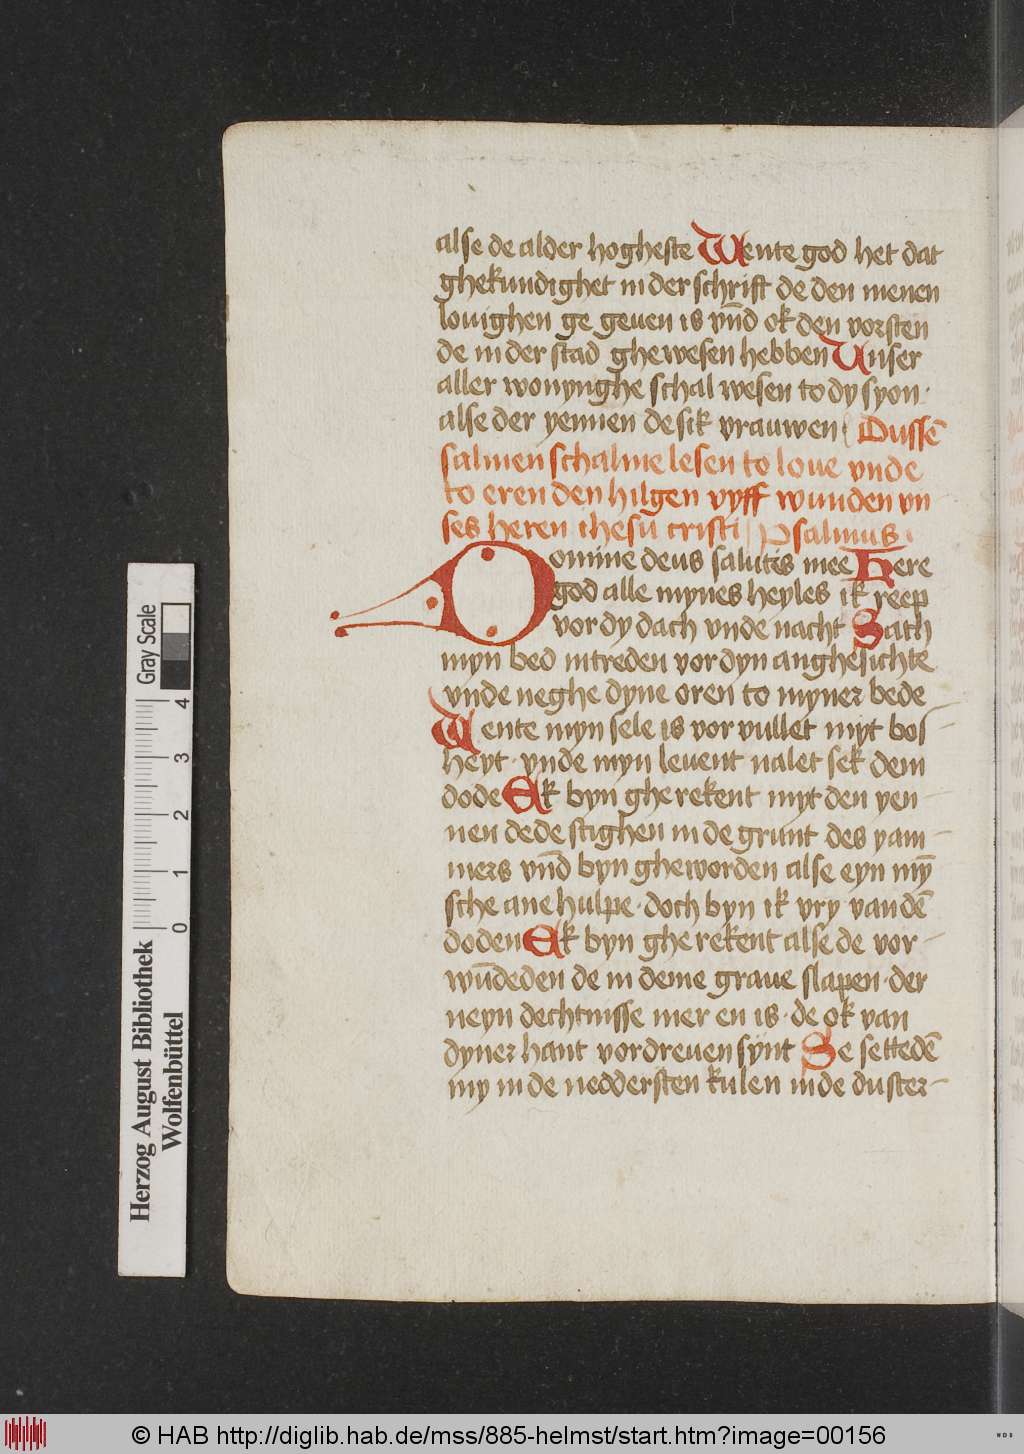 alse de alder hogheste Wente god het dat
ghekundighet in der schrift de den menen
louighen ge geuen is vn̄d ok den vorsten
de in der stad ghewesen hebben Unser
aller wonynghe schal wesen to dy syon·
alse der yennen de sik vrauwen Dussē
salmen schalme lesen to loue vnde
to eren den hilgen vyff wunden vn
ses heren ihesū cristi Psalmus·
Domine deus salutis mee Here
god alle mynes heyles ik reep
vor dy dach vnde nacht Lath
myn bed intreden vor dyn anghesichte
vnde neghe dyne oren to myner bede
Wente myn sele is vor vullet myt bos-
heyt· vnde myn leuent nalet sek dem
dode Ek byn ghe rekent myt den yen-
nen de de stighen in de grunt des yam-
mers vn̄d byn gheworden alse eyn my̅
sche ane hulpe· doch byn ik vry van dē
doden Ek byn ghe rekent alse de vor-
wūdeden de in deme graue slapen· der
neyn dechtnisse mer en is· de ok van
dyner hant vordreuen synt Se settedē
my in de neddersten kulen in de duster-
Gray Scale
4
3
2
1
0
Herzog August Bibliothek
Wolfenbüttel
© HAB http://diglib.hab.de/mss/885-helmst/start.htm?image=00156